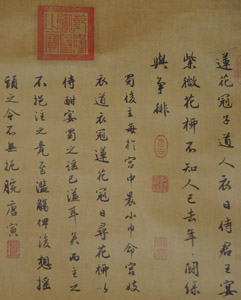 蓮花冠子道人衣日侍君王宴
紫微花柳不知人已去年〻闘綠
與爭緋
蜀後主每於宮中裹小巾命宮妓
衣道衣冠蓮花冠日尋花柳以
侍酣宴蜀之謠已溢耳矣而主之
不挹注之竟至濫觴俾後想搖
頭之令不無扼腕唐寅